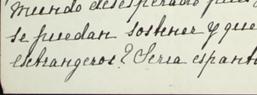 mundo desesperado
se puedan sostener y que
estrangeros? Seria espant